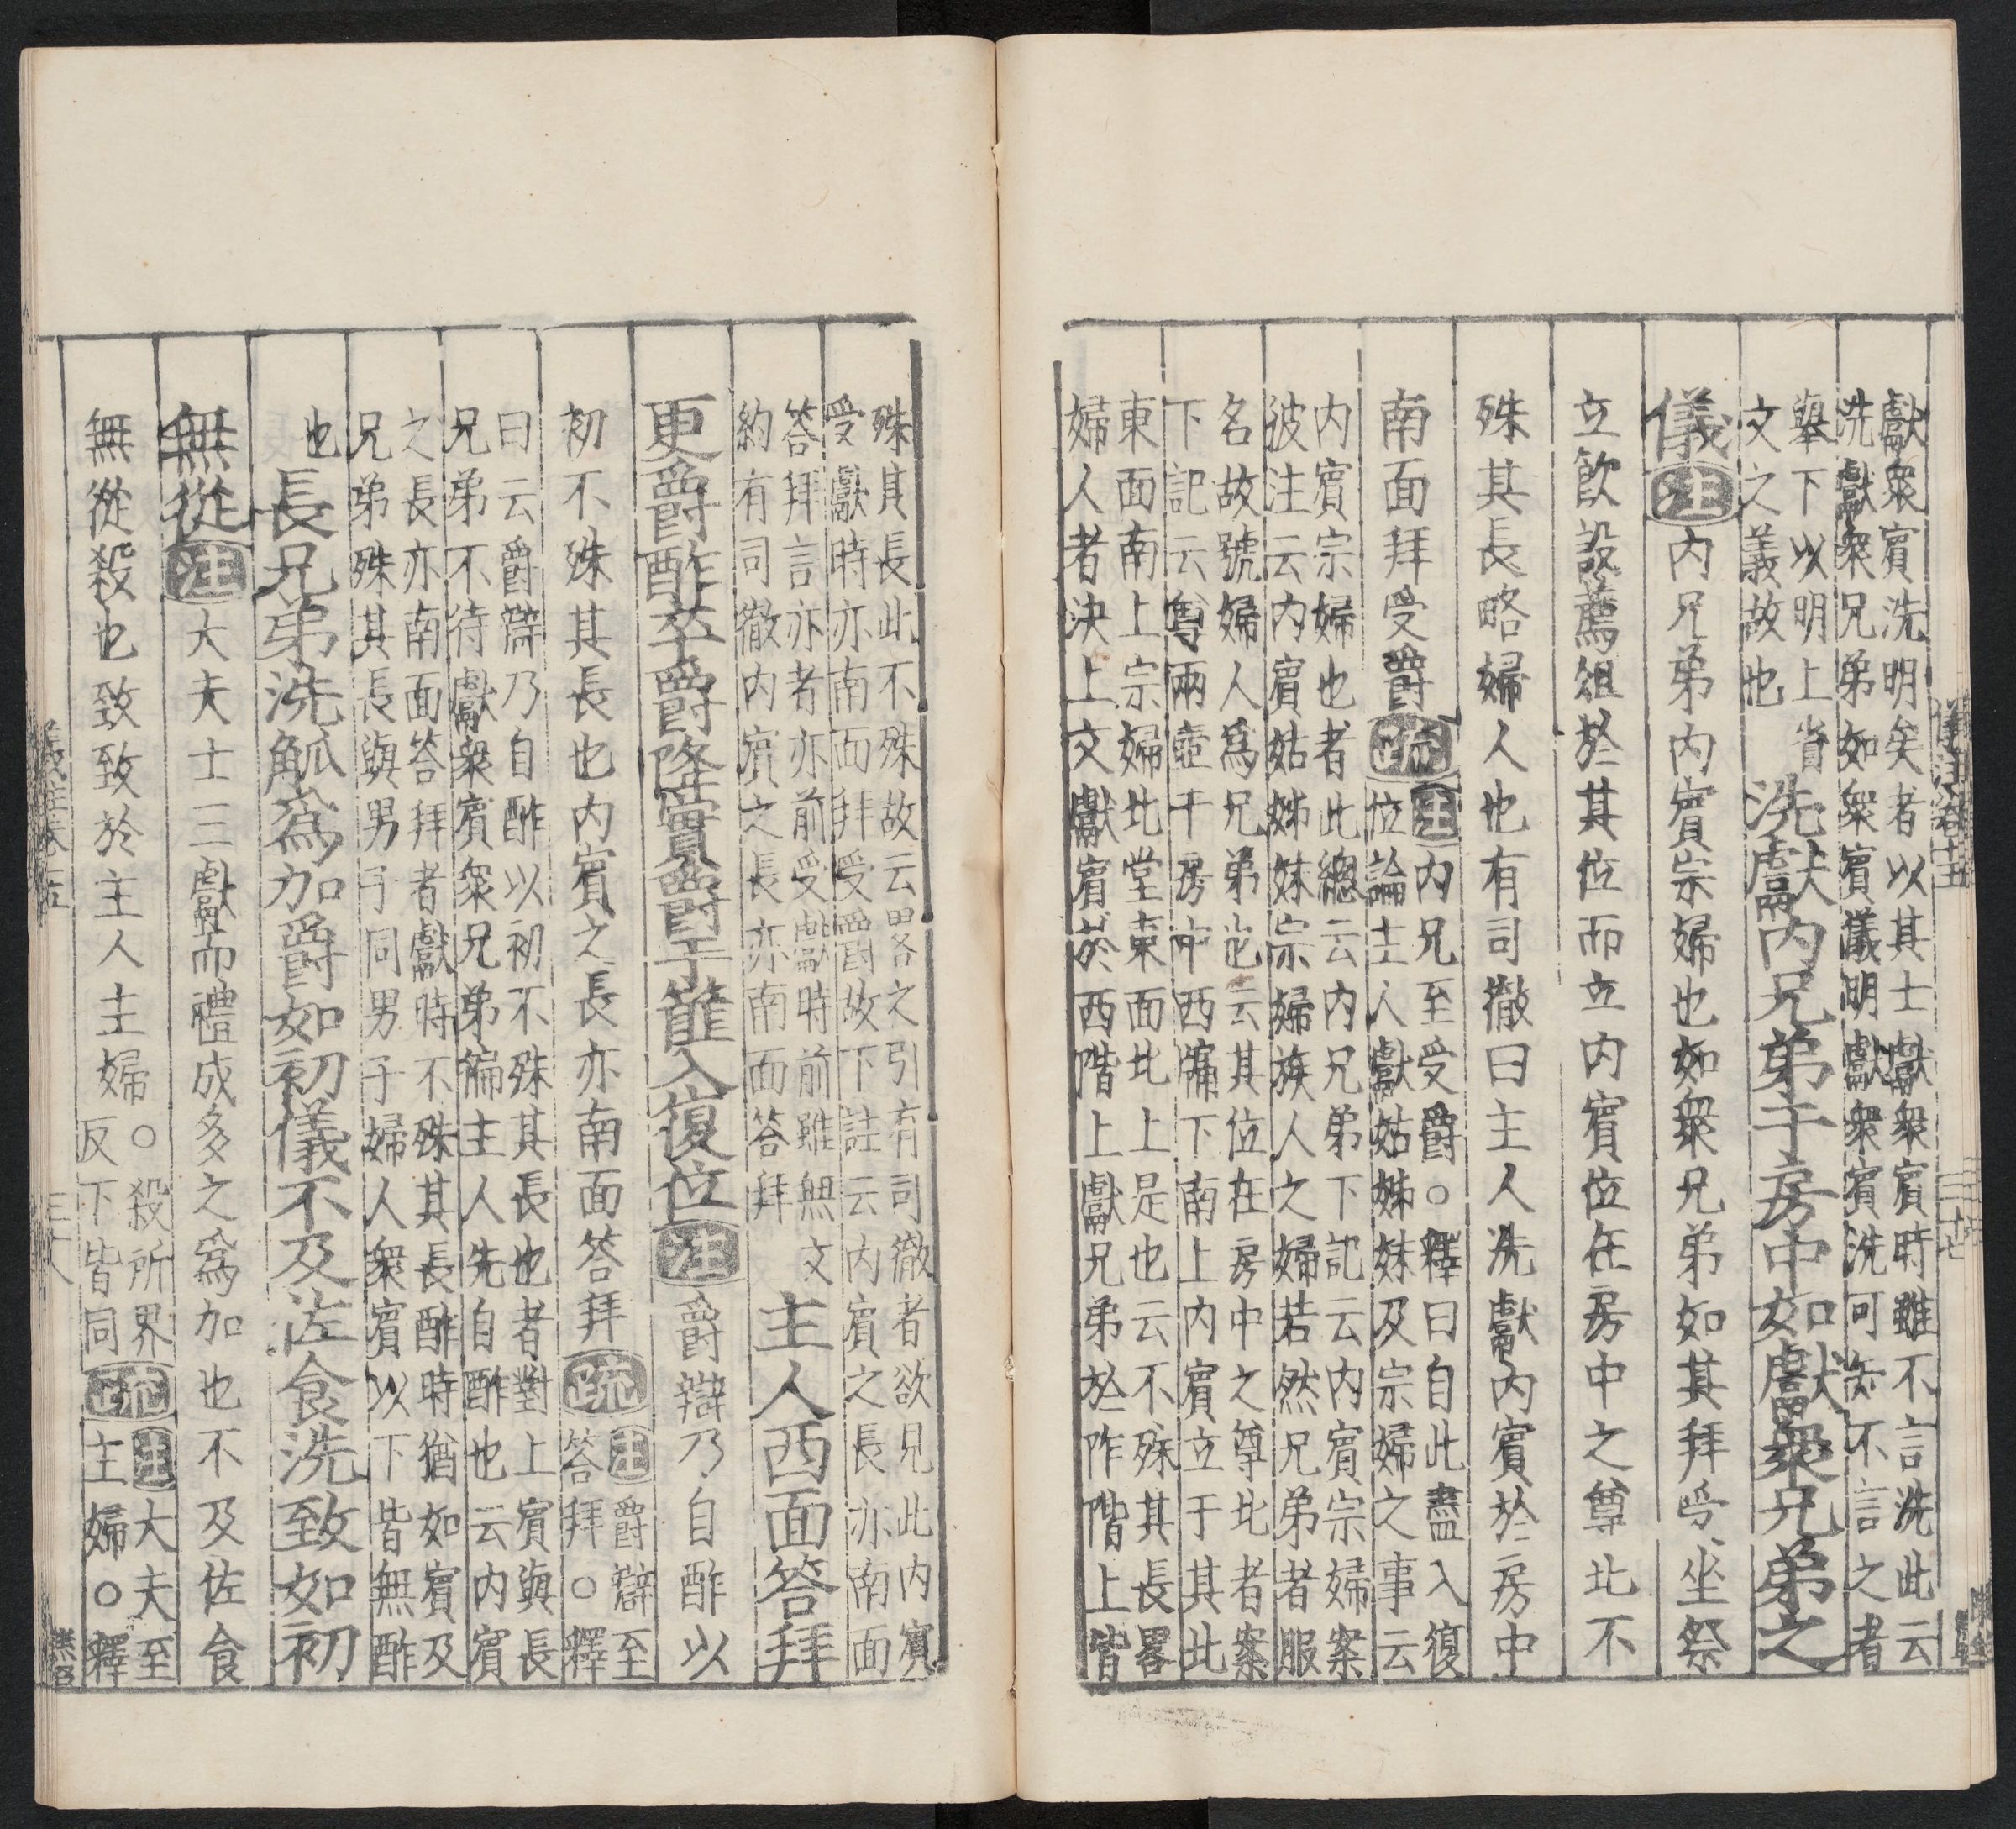 儀注卷十五
獻衆賓洗明矣者以其士獻衆賓時雖不言洗此云
洗獻衆兄弟如衆賓儀明獻衆賓洗可知不言之者
舉下以明上省
文之義故也
洗獻内兄弟于房中如獻衆兄弟之
儀注内兄弟内賓宗婦也如衆兄弟如其拜受坐祭
立飲設薦俎於其位而立内賓位在房中之尊北不
殊其長略婦人也有司徹曰主人洗獻内賓於房中
南面拜受爵疏
注内兄至受爵○釋曰自此盡入復
位論主人獻姑姊妹及宗婦之事云
内賓宗婦也者此總云内兄弟下記云内賓宗婦案
彼注云内賓姑姊妹宗婦族人之婦若然兄弟者服
名故號婦人爲兄弟也云其位在房中之尊北者案
下記云尊兩壺于房中西墉下南上内賓立于其北
東面南上宗婦北堂東面北上是也云不殊其長畧
婦人者決上文獻賓於西階上獻兄弟於阼階上皆
殊其長此不殊故云畧之引有司徹者欲見此内賓
受獻時亦南面拜受爵故下註云内賓之長亦南面
答拜言亦者亦前受獻時前雖無文
約有司徹内賓之長亦南面答拜
主人西面答拜
更爵酢卒爵降實爵于篚入復位注爵辯乃自酢以
初不殊其長也内賓之長亦南面答拜疏
注爵辯至
答拜○釋
曰云爵辯乃自酢以初不殊其長也者對上賓與長
兄弟不待獻衆賓衆兄弟徧主人先自酢也云内賓
之長亦南面答拜者獻時不殊其長酢時猶如賓及
兄弟殊其長與男子同男子婦人衆賓以下皆無酢
也
長兄弟洗觚爲加爵如初儀不及佐食洗致如初
無從注大夫士三獻而禮成多之爲加也不及佐食
無從殺也致致於主人主婦○
殺所界
反下皆同
疏
注大夫至
主婦○釋